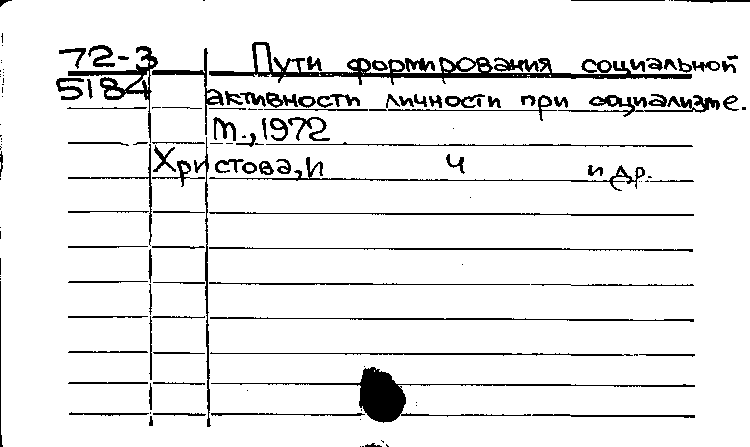 72-3 Пути формирования социальной
5184 активности личности при социализме.
М., 1972
Христова, И Ч и др.